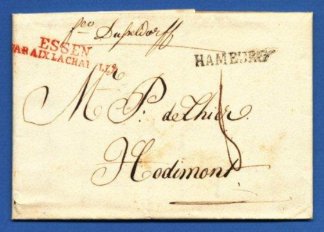 pro Dusseldorff
ESSEN
PAR AIX LA CHAPELLE
HAMBURG
Mr P. de Thier
Hodimont